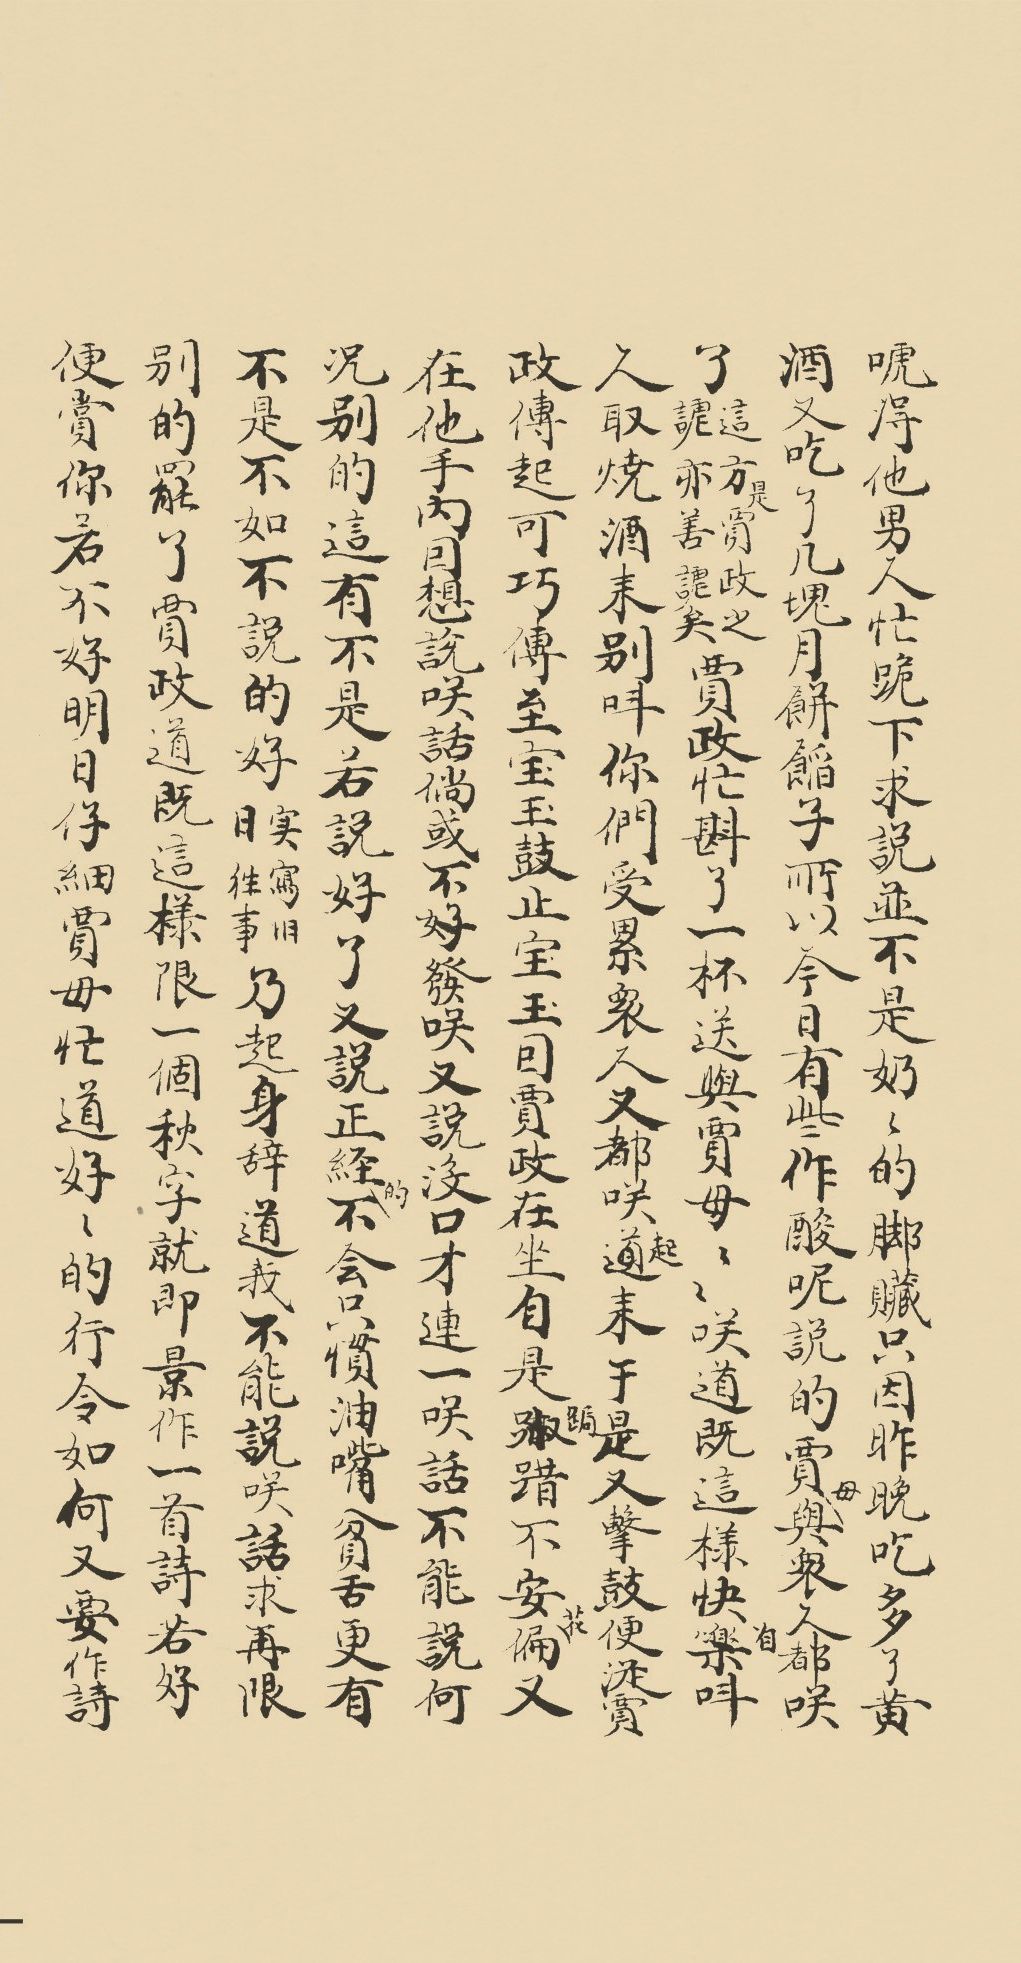 唬得他男人忙跪下求説並不是奶〻的脚臟只因昨晚吃多了黄
酒又吃了几塊月餅餡子所以今日有些作酸呢説的賈母與衆人都咲
了這方是賈政之謔亦善謔矣賈政忙斟了一杯送與賈母〻〻咲道既這樣快樂自呌
人取燒酒来别呌你們受累衆人又都咲道起来于是又擊鼓便從賈
政傳起可巧傳至宝玉鼓止宝玉因賈政在坐自是踧跼踖不安偏花又
在他手内因想説咲話倘或不好發咲又説没口才連一咲話不能説何
况别的這有不是若説好了又説正經的不会只慣油嘴貧舌更有
不是不如不説的好实寫旧日徃事乃起身辞道我不能説咲話求再限
别的罷了賈政道既這樣限一個秋字就即景作一首詩若好
便賞你若不好明日仔細賈母忙道好〻的行令如何又要作詩